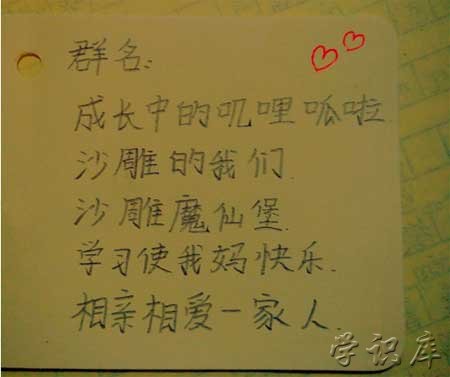 群名:
成长中的叽哩呱啦
沙雕的我们.
沙雕魔仙堡.
学习使我妈快乐.
相亲相爱一家人.
学识库